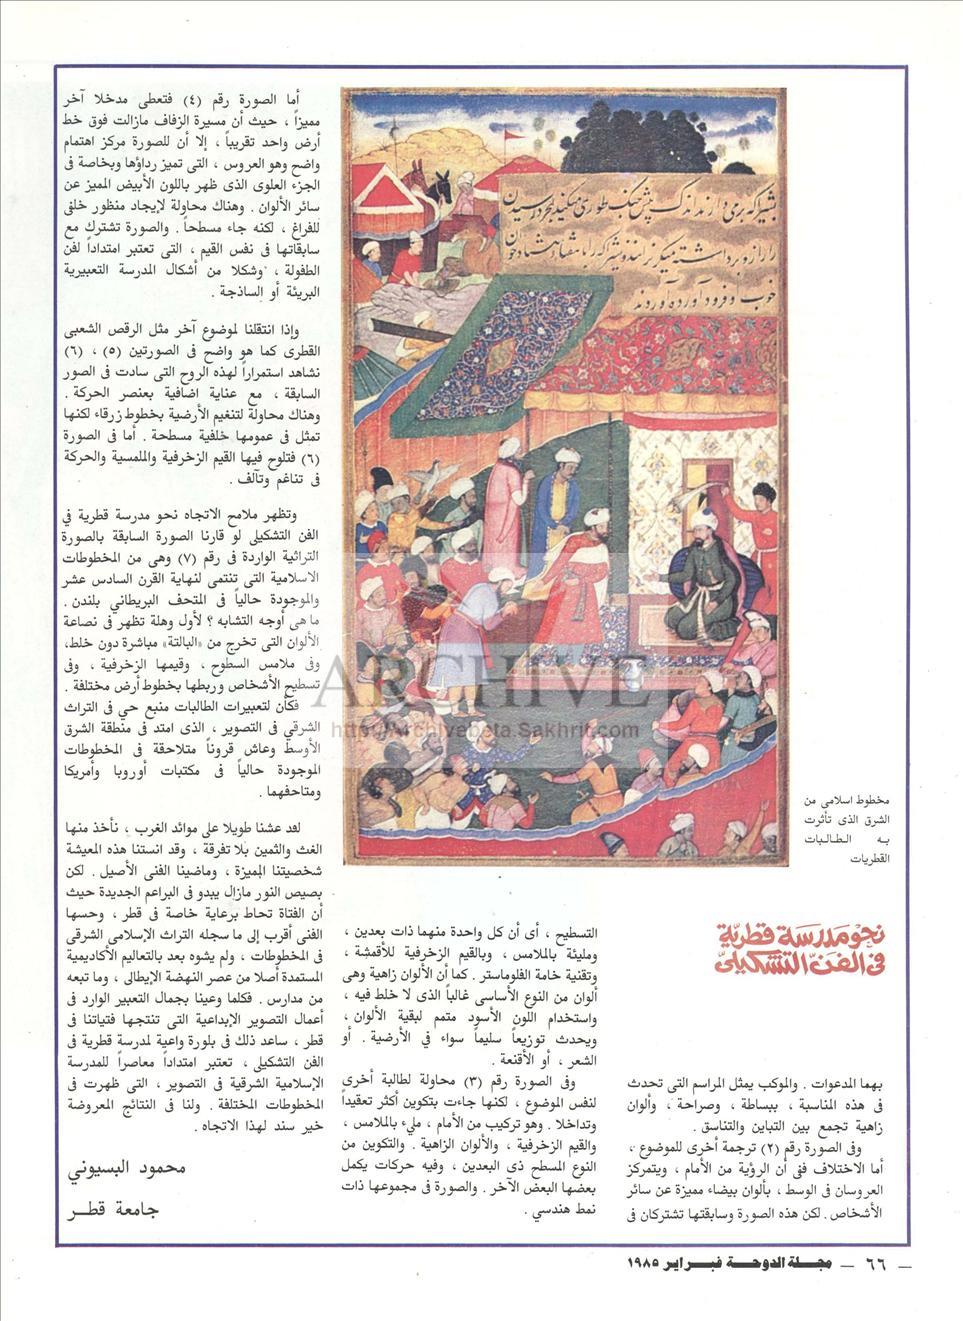 نحو مدرسة قطرية
فى الفن التشكيلى
بهما المدعوات . والموكب يمثل المراسم التى تحدث
فى هذه المناسبة ، ببساطة ، وصراحة ، وألوان
زاهية تجمع بين التباين والتناسق .
وفى الصورة رقم (٢) ترجمة أخرى للموضوع ،
أما الاختلاف ففى أن الرؤية من الأمام ، ويتمركز
العروسان فى الوسط ، بألوان بيضاء مميزة عن سائر
الأشخاص . لكن هذه الصورة وسابقتها تشتركان فى
التسطيح ، أى أن كل واحدة منهما ذات بعدين ،
ومليئة بالملامس ، وبالقيم الزخرفية للأقمشة ،
وتقنية خامة الفلوماستر . كما أن الألوان زاهية وهى
ألوان من النوع الأساسى غالباً الذى لا خلط فيه ،
واستخدام اللون الأسود متمم لبقية الألوان ،
ويحدث توزيعاً سليماً سواء في الأرضية . أو
الشعر ، أو الأقنعة .
وفى الصورة رقم (٣) محاولة لطالبة أخرى
لنفس الموضوع ، لكنها جاءت بتكوين أكثر تعقيداً
وتداخلا . وهو تركيب من الأمام ، مليء بالملامس ،
والقيم الزخرفية ، والألوان الزاهية . والتكوين من
النوع المسطح ذى البعدين ، وفيه حركات يكمل
بعضها البعض الآخر . والصورة فى مجموعها ذات
نمط هندسي .
أما الصورة رقم (٤) فتعطى مدخلا آخر
مميزاً ، حيث أن مسيرة الزفاف مازالت فوق خط
أرض واحد تقريباً ، إلا أن للصورة مركز اهتمام
واضح وهو العروس ، التى تميز رداؤها وبخاصة فى
الجزء العلوى الذى ظهر باللون الأبيض المميز عن
سائر الألوان . وهناك محاولة لإيجاد منظور خلفى
للفراغ ، لكنه جاء مسطحاً . والصورة تشترك مع
سابقاتها فى نفس القيم ، التى تعتبر امتداداً لفن
الطفولة ، وشكلا من أشكال المدرسة التعبيرية
البريئة أو الساذجة .
وإذا انتقلنا لموضوع آخر مثل الرقص الشعبى
القطرى كما هو واضح فى الصورتين (٥) ، (٦)
نشاهد استمراراً لهذه الروح التى سادت فى الصور
السابقة ، مع عناية اضافية بعنصر الحركة .
وهناك محاولة لتنغيم الأرضية بخطوط زرقاء لكنها
تمثل فى عمومها خلفية مسطحة . أما فى الصورة
(٦) فتلوح فيها القيم الزخرفية والملمسية والحركة
فى تناغم وتآلف .
وتظهر ملامح الاتجاه نحو مدرسة قطرية في
الفن التشكيلى لو قارنا الصورة السابقة بالصورة
التراثية الواردة فى رقم (٧) وهى من المخطوطات
الاسلامية التى تنتمى لنهاية القرن السادس عشر
والموجودة حالياً فى المتحف البريطاني بلندن .
ما هى أوجه التشابه ؟ لأول وهلة تظهر فى نصاعة
الألوان التى تخرج من «البالتة» مباشرة دون خلط،
وفى ملامس السطوح ، وقيمها الزخرفية ، وفى
تسطيح الأشخاص وربطها بخطوط أرض مختلفة .
فكأن لتعبيرات الطالبات منبع حي فى التراث
الشرقي فى التصوير ، الذى امتد فى منطقة الشرق
الأوسط وعاش قروناً متلاحقة فى المخطوطات
الموجودة حالياً فى مكتبات أوروبا وأمريكا
ومتاحفهما .
لقد عشنا طويلا على موائد الغرب ، نأخذ منها
الغث والثمين بلا تفرقة ، وقد انستنا هذه المعيشة
شخصيتنا المميزة ، وماضينا الفنى الأصيل . لكن
بصيص النور مازال يبدو فى البراعم الجديدة حيث
أن الفتاة تحاط برعاية خاصة فى قطر ، وحسها
الفنى أقرب إلى ما سجله التراث الإسلامى الشرقى
فى المخطوطات ، ولم يشوه بعد بالتعاليم الأكاديمية
المستمدة أصلا من عصر النهضة الإيطالى ، وما تبعه
من مدارس . فكلما وعينا بجمال التعبير الوارد فى
أعمال التصوير الإبداعية التى تنتجها فتياتنا فى
قطر ، ساعد ذلك فى بلورة واعية لمدرسة قطرية فى
الفن التشكيلى ، تعتبر امتداداً معاصراً للمدرسة
الإسلامية الشرقية فى التصوير ، التى ظهرت فى
المخطوطات المختلفة . ولنا فى النتائج المعروضة
خير سند لهذا الاتجاه .
محمود البسيوني
جامعة قطر
مخطوط اسلامى من
الشرق الذى تأثرت
به الطالبات
القطريات
ARCHIVE
http://Archivebeta.Sakhrit.com
— ٦٦ — مجلة الدوحة فبراير ١٩٨٥